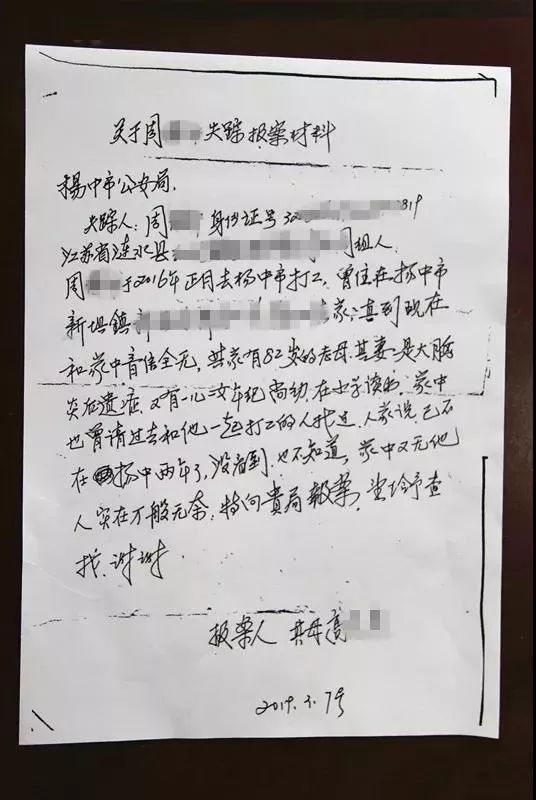 关于周 失踪报案材料
扬中市公安局.
失踪人:周 身份证号32 819
江苏省涟水县 周组人.
周 于2016年正月去扬中市打工,曾住在扬中市
新坝镇 家,直到现在
和家中音信全无,其家有82岁的老母.其妻是大脑
炎后遗症,又有一儿一女年纪尚幼,在小学读书,家中
也曾请过去和他一起打工的人找过,人家说,已不
在扬中两年了,没看到,也不知道,家中又无他
人实在万般无奈.特向貴局報案,望给予查
找.谢谢
报案人 其母高
2019.3.7号